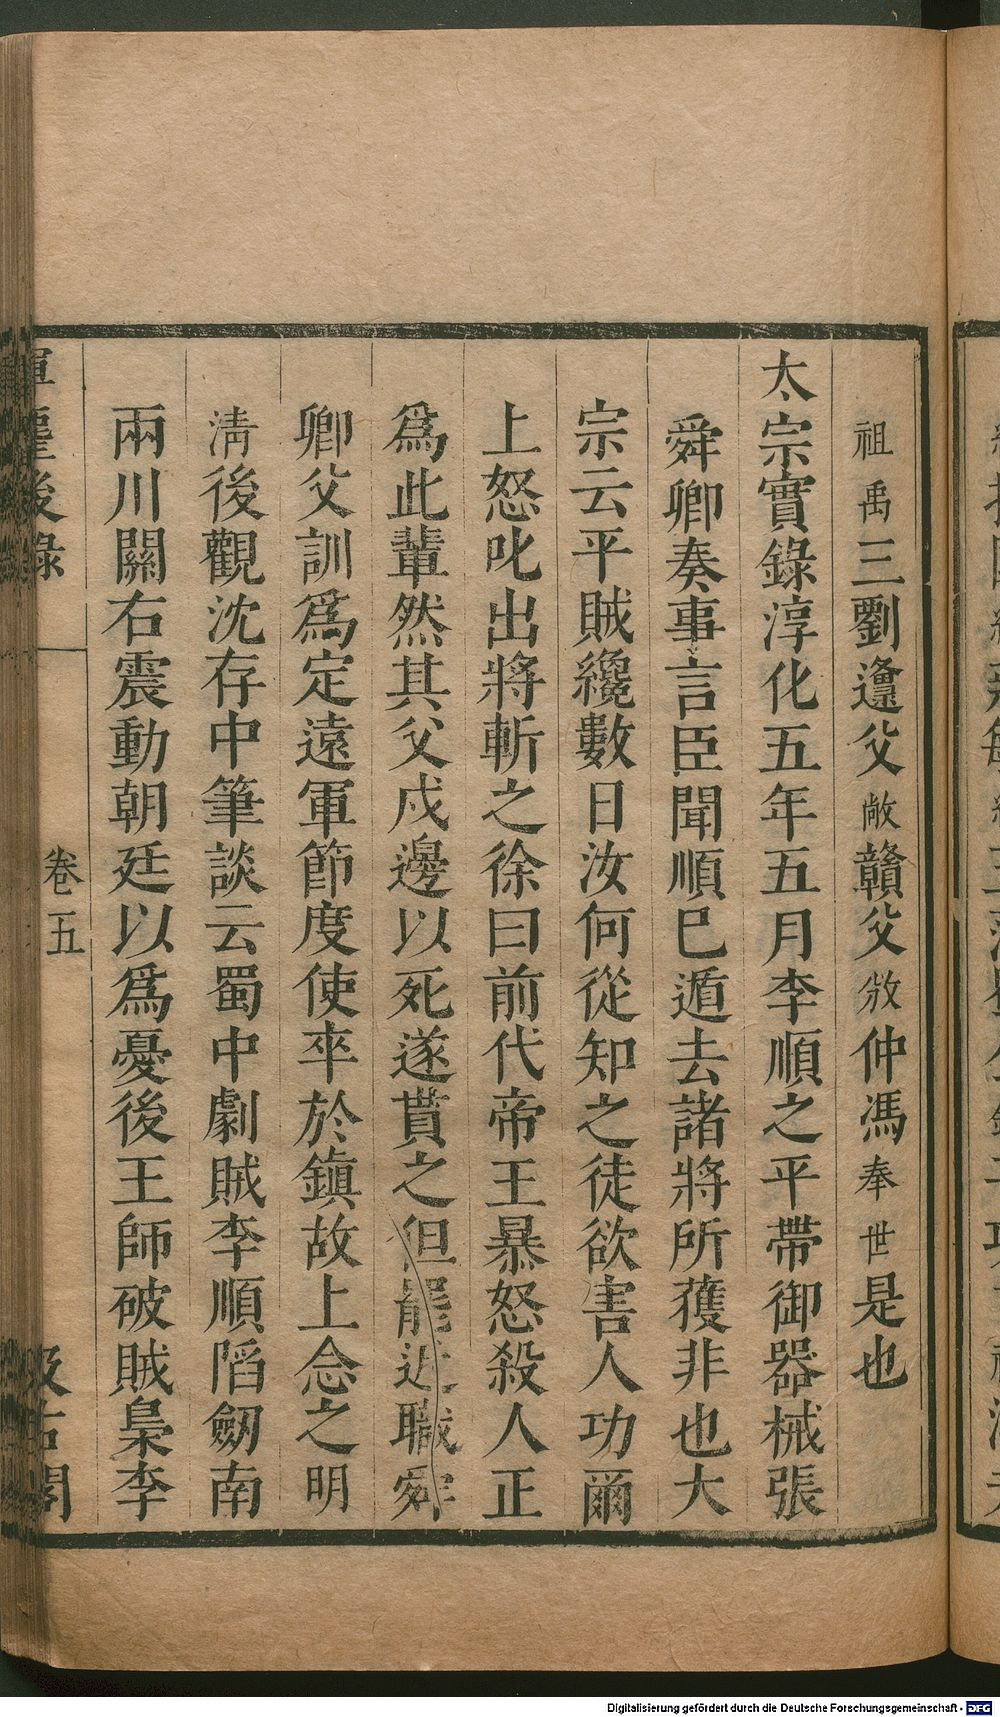 祖禹三劉邍父敞贛父攽仲馮奉世是也
太宗實錄淳化五年五月李順之平帶御器械張
舜卿奏事言臣聞順已遁去諸將所獲非也大
宗云平賊纔數日汝何從知之徒欲害人功爾
上怒叱出將斬之徐曰前代帝王暴怒殺人正
爲此輩然其父戍邊以死遂貰之但罷近職舜
卿父訓爲定遠軍節度使卒於鎮故上念之明
淸後觀沈存中筆談云蜀中劇賊李順䧟劒南
兩川關右震動朝廷以爲憂後王師破賊梟李
揮麈後錄
卷五
汲古閣
Digitalisierung gefördert durch die Deutsche Forschungsgemeinschaft - DFG